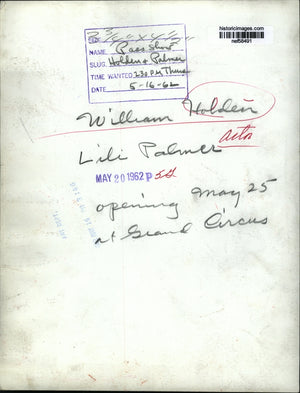 historicimages.com
nef56491
NAME Pass Show
SLUG Holden & Palmer
TIME WANTED 2:30 PM Thurs
DATE 5-16-62
William Holden
actor
Lili Palmer
MAY 20 1962 P
opening May 25
at Grand Circus